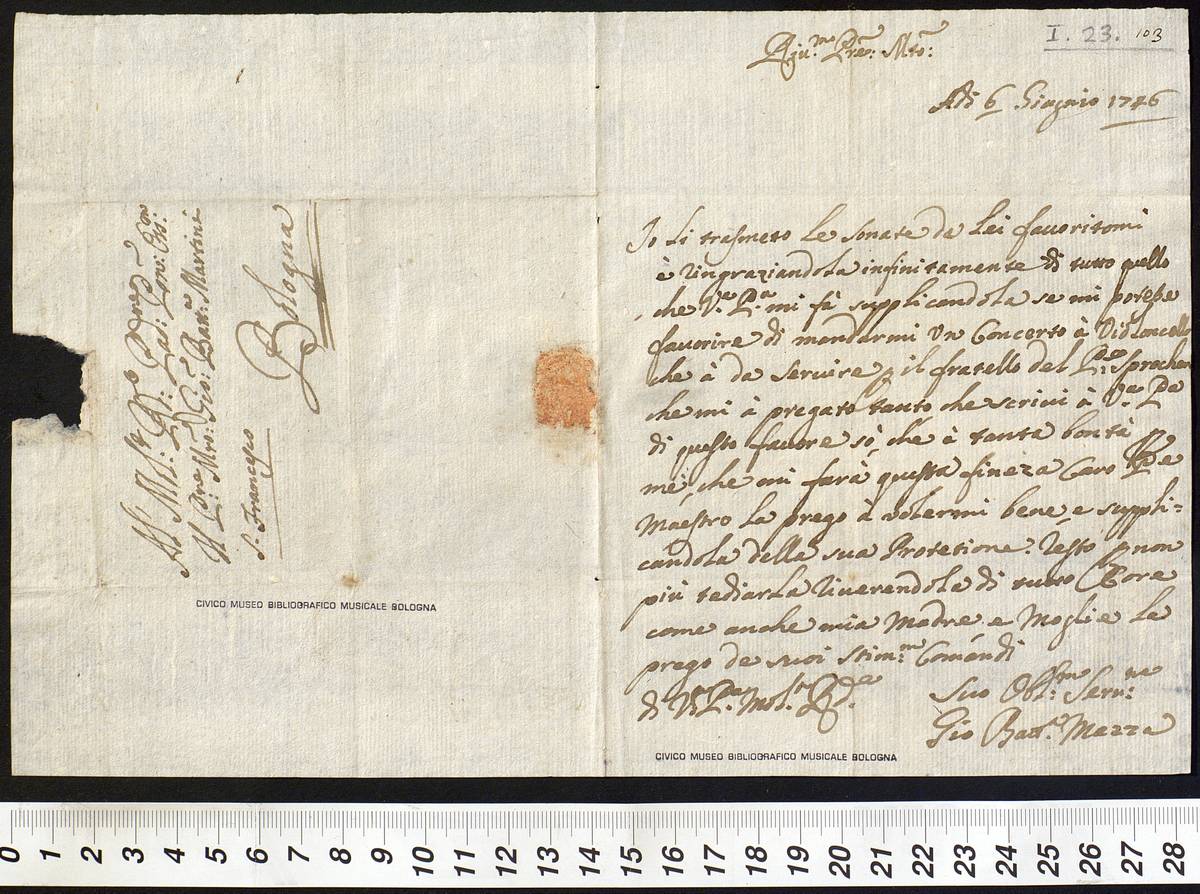 All' Ml.to Rd.o Pdre Pron
Il Pre Mro: Gio: Batt.a Martini
S. Francesco
Bologna
CIVICO MUSEO BIBLIOGRAFICO MUSICALE BOLOGNA
I. 23. 103
Rju.mo Pre: Mro:
Adi 6 Giugnio 1746
Io Li trasmeto Le Sonate da Lei favoritomi
è ringraziandola infinitamente di tutto quello
che V.a P.a mi fà supplicandola se mi potesse
favorire di mandarmi Un Concerto à Violoncello
che à da servire p il fratello del P.re Sprecher
che mi à pregato tanto che scrivi à V.a Pe
di questo favore sò, che à tanta bontà p
me, che mi farà questa fineza Caro Pe
Maestro La prego à volermi bene e suppli=
candola della sua Protetione. resto p non
più tediarla riverendola di tutto Core
come anche mia Madre e Moglie La
prego de suoi Stim.mi Comandi
di V.a P.a Mol.to Rd.a
Suo Obl.mo Serv.re
Gio Batt.a Mazza
CIVICO MUSEO BIBLIOGRAFICO MUSICALE BOLOGNA
0 1 2 3 4 5 6 7 8 9 10 11 12 13 14 15 16 17 18 19 20 21 22 23 24 25 26 27 28